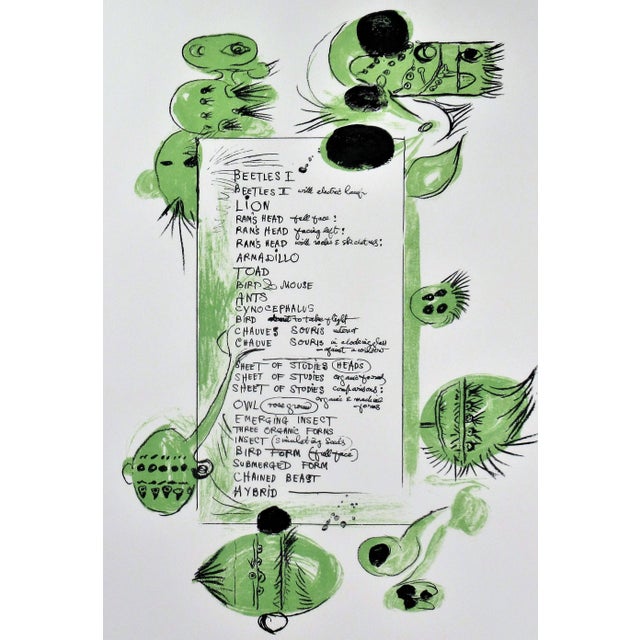 BEETLES I
BEETLES II with electric lamp
LION
RAM'S HEAD full face:
RAM'S HEAD facing left:
RAM'S HEAD with rocks & skeletons:
ARMADILLO
TOAD
BIRD & MOUSE
ANTS
CYNOCEPHALUS
BIRD to take flight
CHAUVES SOURIS
CHAUVE SOURIS in a looking glass
against a window
SHEET OF STUDIES (HEADS)
SHEET OF STUDIES organic forms
SHEET OF STUDIES comparisons:
organic & machine
forms
OWL (rose ground)
EMERGING INSECT
THREE ORGANIC FORMS
INSECT (simulating seeds)
BIRD FORM (full face)
SUBMERGED FORM
CHAINED BEAST
HYBRID